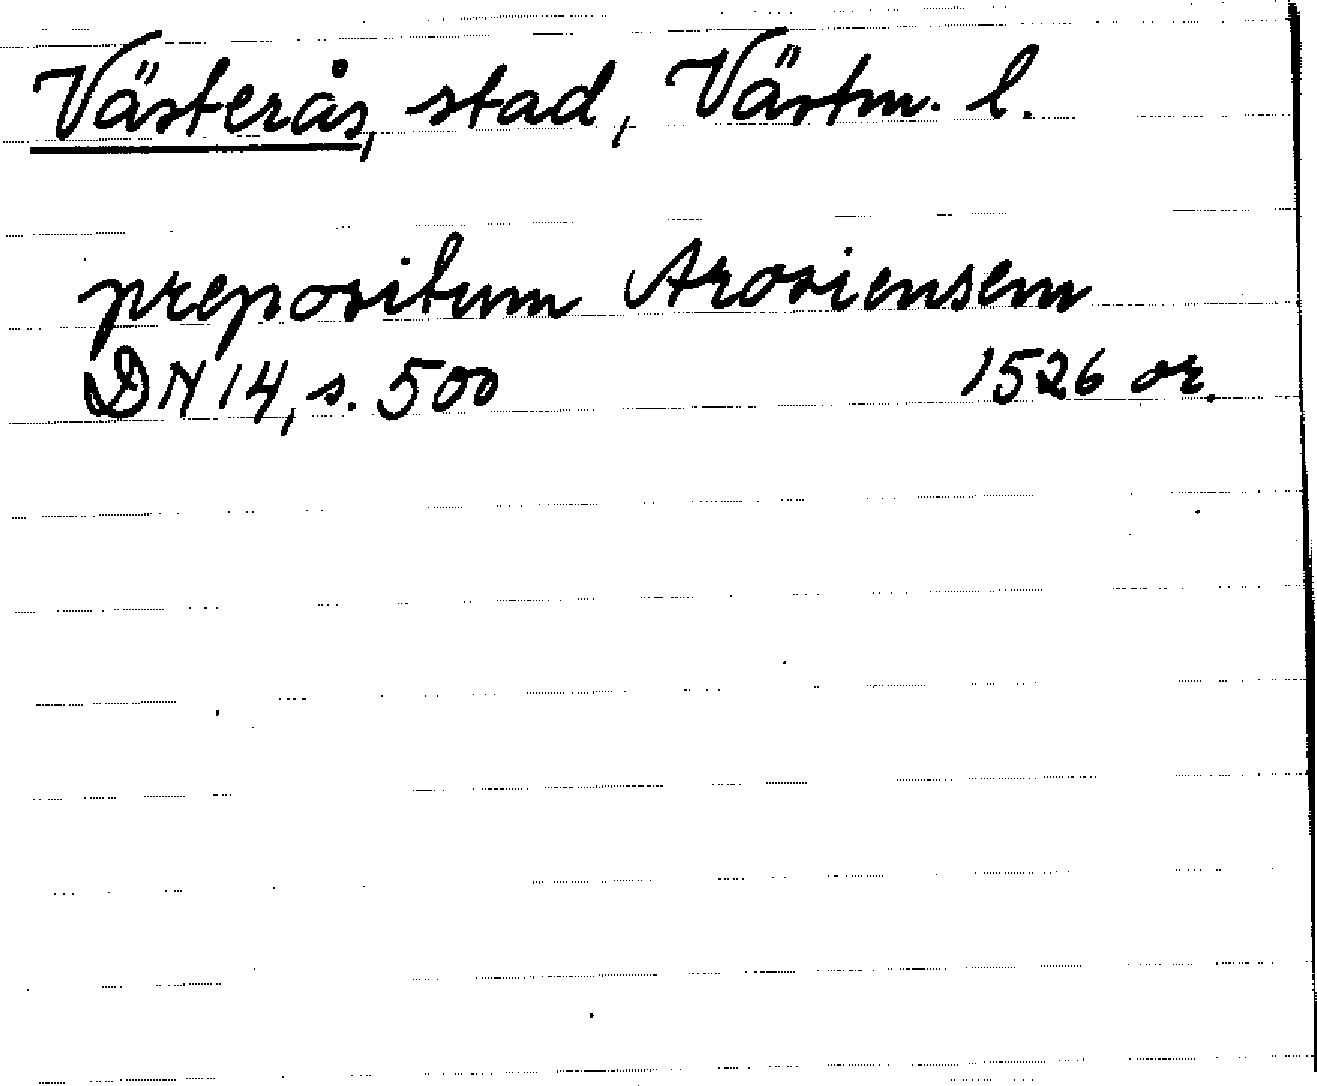 Västerås, stad, Västm. l.
prepositum Arosiensem
DN 14, s. 500 1526 or.